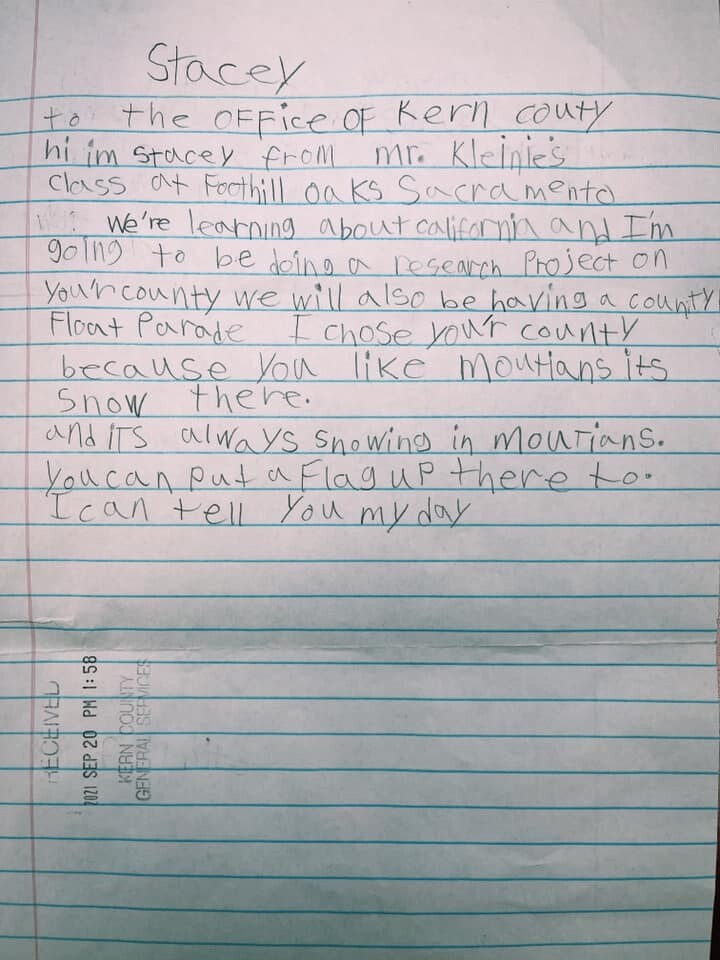 Stacey
to the OFFice OF Kern couty
hi im stacey from mr. Kleinie's
Class at Foothill oaks Sacramento
We're learning about california and I'm
going to be doing a research Project on
you'r county we will also be having a county
Float Parade I chose you'r county
because you like moutians its
snow there.
and iTS always snowing in mouTians.
You can put a Flag up there to.
I can tell you my day
RECEIVED
2021 SEP 20 PM 1:58
KERN COUNTY
GENERAL SERVICES